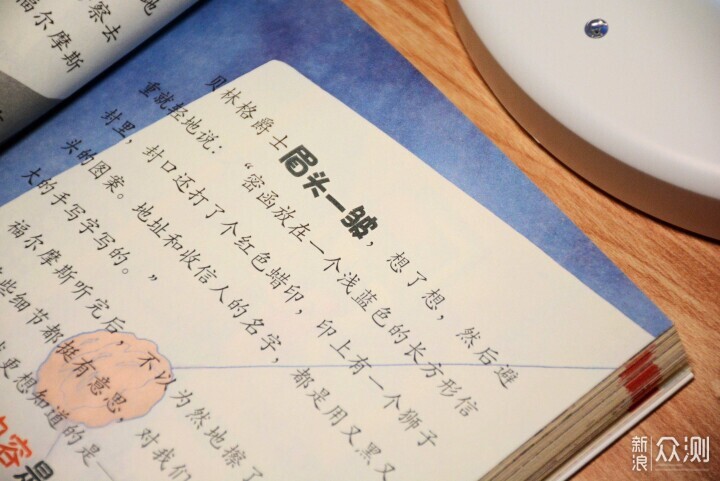 地
察去
福尔摩斯
贝林格爵士眉头一皱，想了想，然后避
重就轻地说：“密函放在一个浅蓝色的长方形信
封里，封口还打了个红色蜡印，印上有一个狮子
头的图案。地址和收信人的名字，都是用又黑又
大的手写字写的。”
福尔摩斯听完后，不以为然地擦了
些细节都挺有意思，对我们
更想知道的是—
内容是
新浪 众测